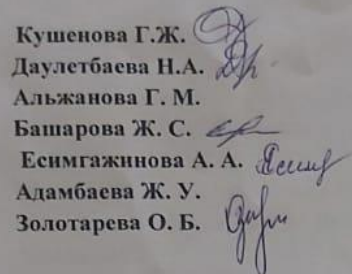 Кушенова Г.Ж.
Даулетбаева Н.А.
Альжанова Г. М.
Башарова Ж. С.
Есимгажинова А. А.
Адамбаева Ж. У.
Золотарева О. Б.